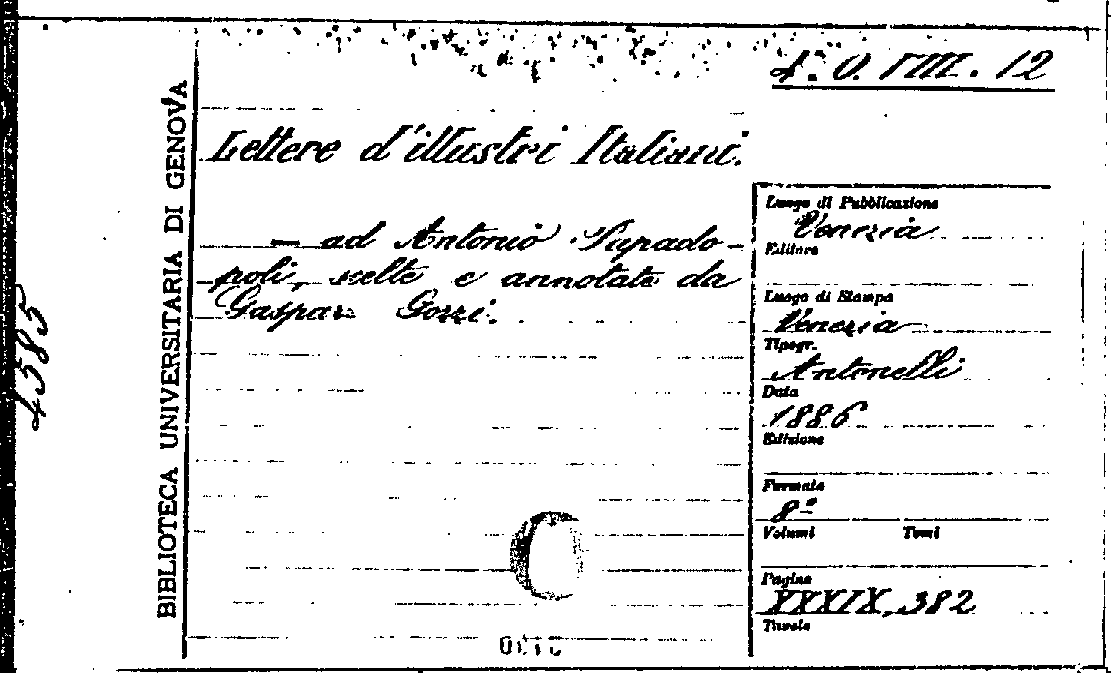 4. O. VIII. 12
BIBLIOTECA UNIVERSITARIA DI GENOVA
4585
Lettere d'illustri Italiani.
— ad Antonio Papado-
poli, scelte e annotate da
Gaspar Gozzi.
Luogo di Pubblicazione
Venezia
Editore
Luogo di Stampa
Venezia
Tipogr.
Antonelli
Data
1886
Edizione
Formato
8º
Volumi Tomi
Pagine
XXXIX, 382
Tavole